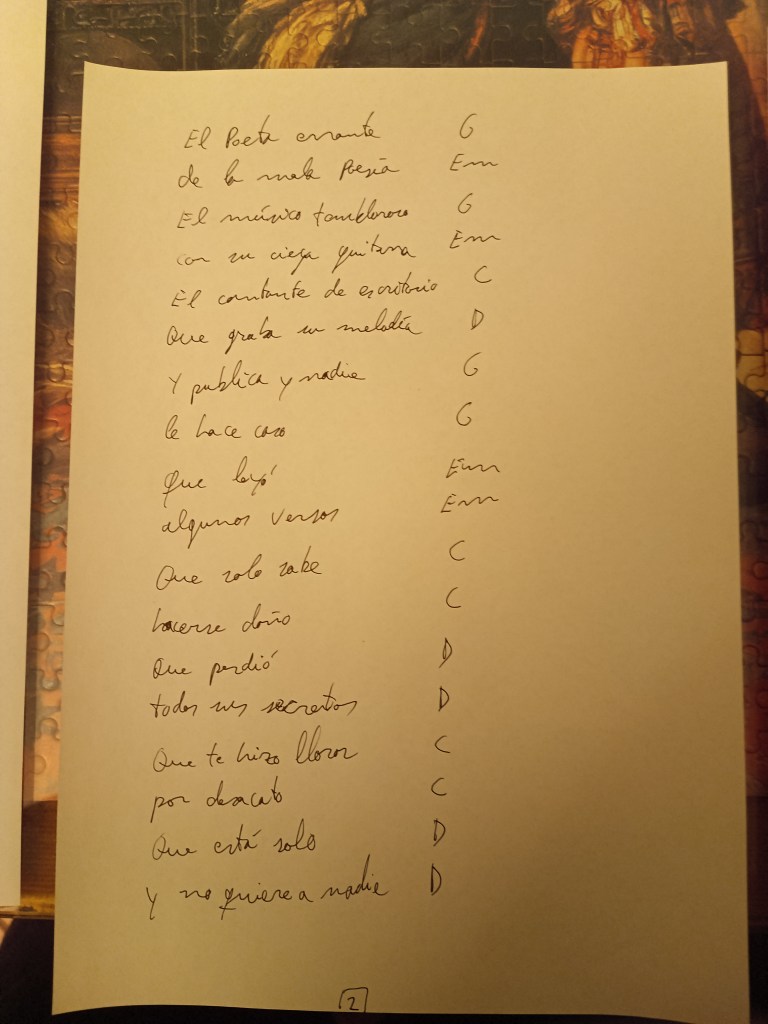 El Poeta errante G
de la mala Poesía Em
El músico tembloroso G
con su ciega guitarra Em
El cantante de escritorio C
Que graba su melodía D
Y publica y nadie G
le hace caso G
Que leyó Em
algunos versos Em
Que solo sabe C
hacerse daño C
Que perdió D
todos sus secretos D
Que te hizo llorar C
por desacato C
Que está solo D
Y no quiere a nadie D
2